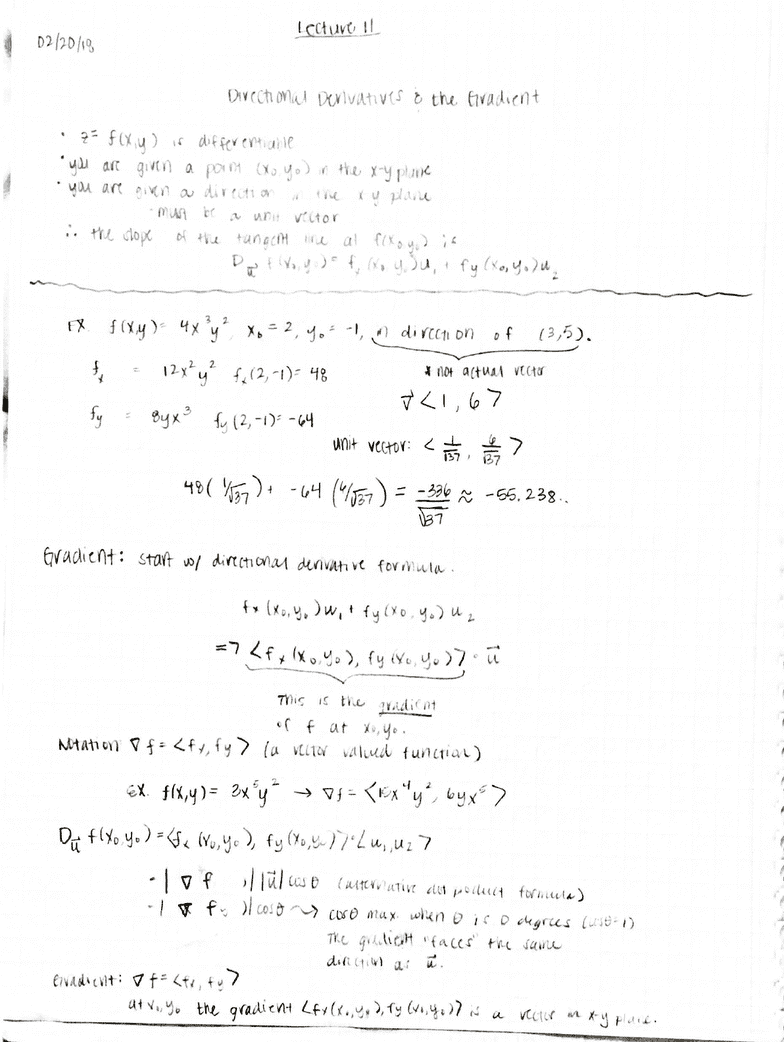 Lecture 11
02/20/18
Directional Derivatives & the Gradient
• z = f(x,y) is differentiable
• you are given a point (x₀,y₀) in the x-y plane
• you are given a direction in the x y plane
- must be a unit vector
∴ the slope of the tangent line at f(x₀y₀) is
D_u⃗ f(x₀,y₀) = fₓ(x₀,y₀)u₁ + f_y(x₀,y₀)u₂
EX. f(x,y) = 4x³y², x₀ = 2, y₀ = -1, in direction of (3,5).
fₓ = 12x²y² fₓ(2,-1) = 48
* not actual vector
v⃗ <1, 6>
f_y = 8yx³ f_y(2,-1) = -64
unit vector: < 1/√37, 6/√37 >
48(1/√37) + -64(6/√37) = -336/√37 ≈ -55.238..
Gradient: start w/ directional derivative formula.
fₓ(x₀,y₀)u₁ + f_y(x₀,y₀)u₂
=> <fₓ(x₀,y₀), f_y(x₀,y₀)> · u⃗
This is the gradient
of f at x₀,y₀.
Notation ∇f = <fₓ, f_y> (a vector valued function)
EX. f(x,y) = 3x⁵y² → ∇f = <15x⁴y², 6yx⁵>
D_u⃗ f(x₀,y₀) = <fₓ(x₀,y₀), f_y(x₀,y₀)> · <u₁,u₂>
- | ∇ f )||u⃗| cosθ (alternative dot product formula)
- | ∇ f )| cosθ ~> cosθ max. when θ is 0 degrees (cosθ=1)
The gradient "faces" the same
direction as u⃗.
Gradient: ∇f = <fₓ, f_y>
at x₀,y₀ the gradient <fₓ(x₀,y₀), f_y(x₀,y₀)> is a vector in x-y plane.